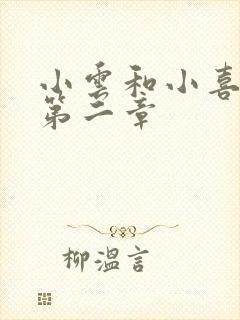 小雲和小喜
第二章
柳溫言